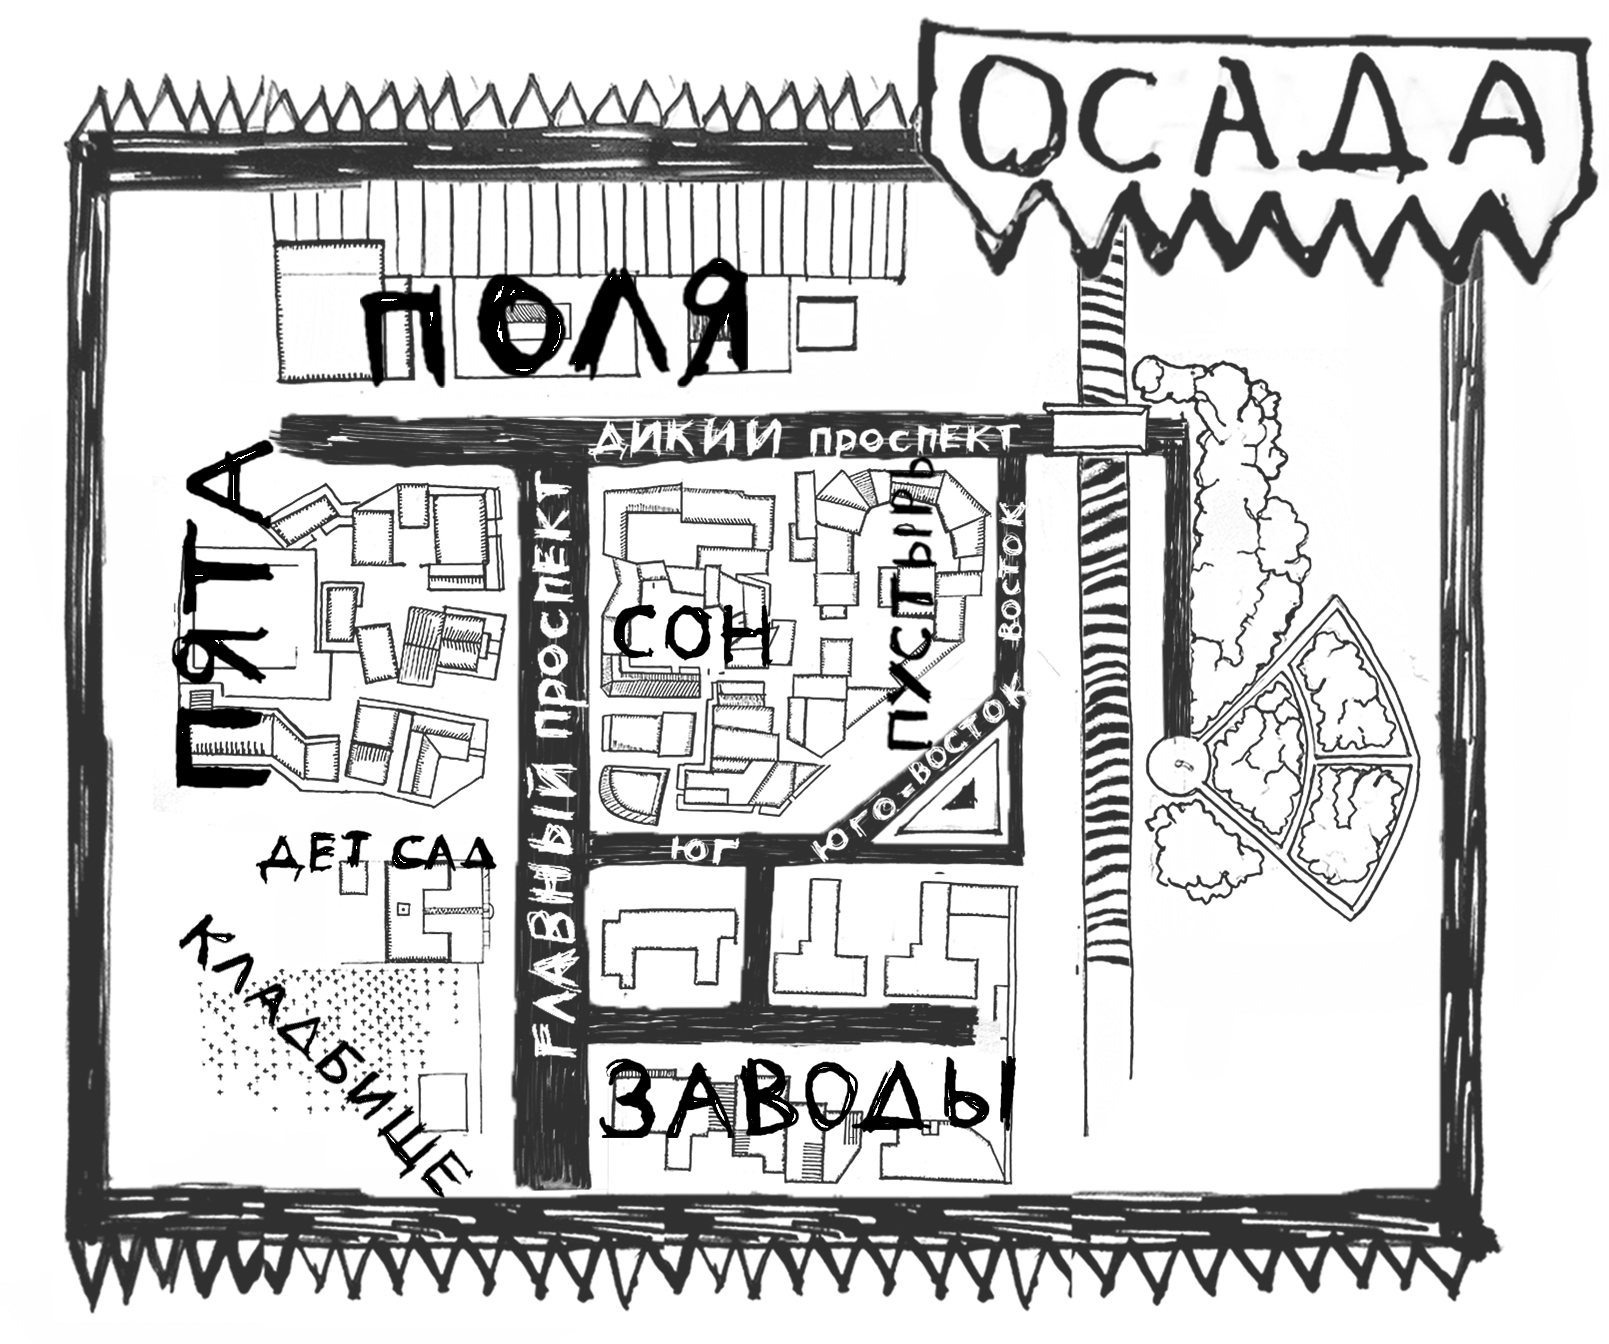 ОСАДА
ПОЛЯ
ДИКИЙ ПРОСПЕКТ
ПЯТА
ГЛАВНЫЙ ПРОСПЕКТ
СОН
ПУСТЫРЬ
ВОСТОК
ЮГО-ВОСТОК
ЮГ
ДЕТ САД
КЛАДБИЩЕ
ЗАВОДЫ